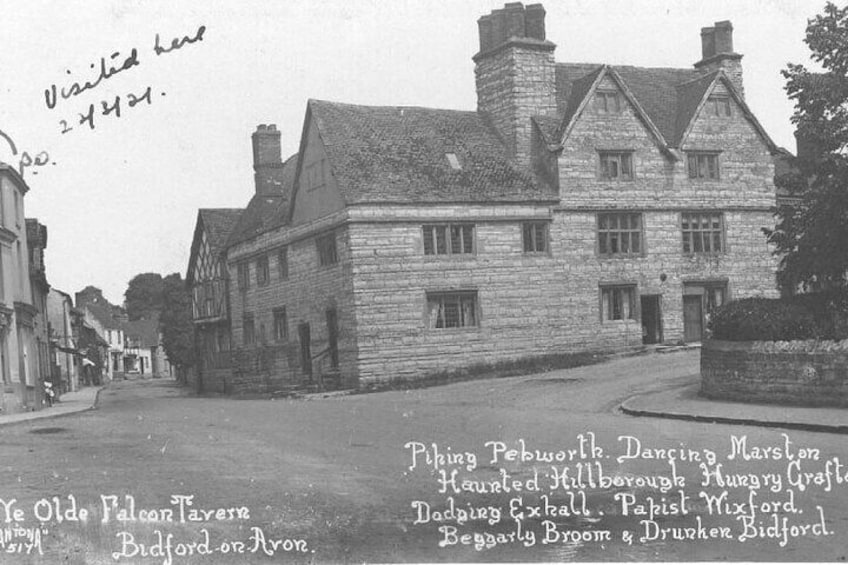 Visited here
22/3/21.
P.O.
Piping Pebworth. Dancing Marston
Haunted Hillborough Hungry Grafto
Dodging Exhall. Papist Wixford.
Beggarly Broom & Drunken Bidford.
Ye Olde Falcon Tavern
Bidford-on-Avon.
"ANTONA"
517